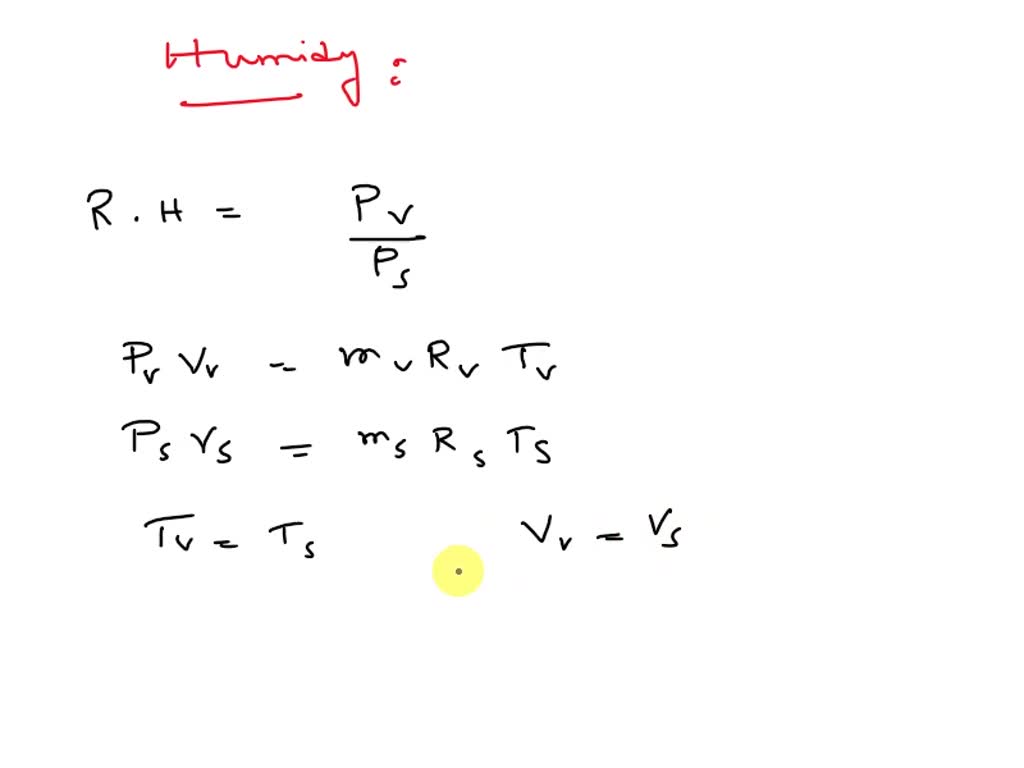 Humidy:
R.H = Pv / Ps
Pv Vv = mv Rv Tv
Ps Vs = ms Rs Ts
Tv = Ts Vv = Vs